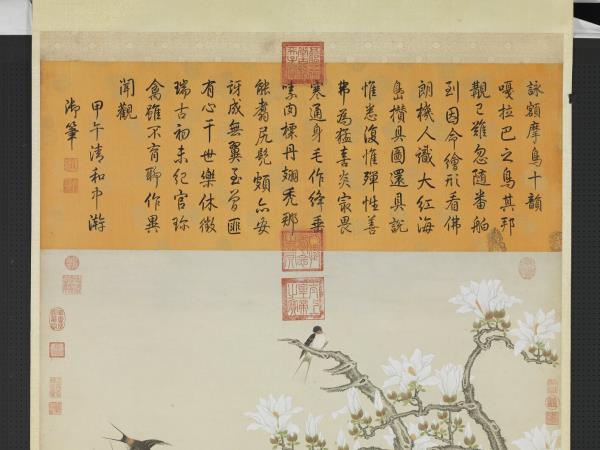 詠額摩鳥十韻
嘎拉巴之鳥其邦
覯已難忽隨番舶
到因命繪形看佛
朗機人識大紅海
島攢具圖還具說
惟悉復惟殫性善
弗為猛喜炎家畏
寒通身毛作絳垂
嗉肉標丹翅禿那
能翥尻髡頗亦安
訝成無翼至曾匪
有心干世樂休徵
瑞古初未紀官珎
禽雖不育聊作異
聞觀
甲午清和中澣
御筆